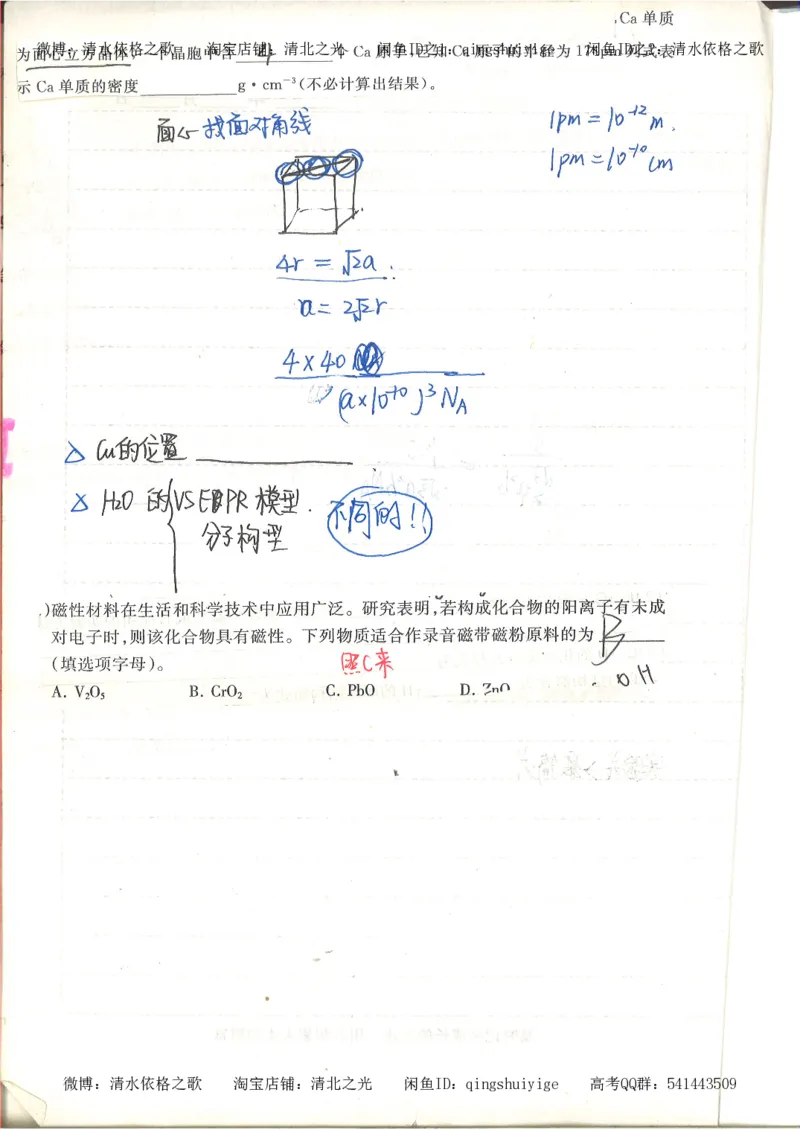 ,Ca 单质
微博：清水依格之歌 淘宝店铺：清北之光 闲鱼ID之1：qingshuiyige 闲鱼ID之2：清水依格之歌
为面心立方晶体，一个晶胞中含 4 个 Ca 原子，已知 Ca 原子的半径为 174pm 列式表
示 Ca 单质的密度__________g·cm⁻³(不必计算出结果)。
面心→找面对角线
1pm=10⁻¹²m.
1pm=10⁻¹⁰cm
4r = √2a
a = 2√2r
4×40
(a×10⁻¹⁰)³ NA
△ Cu的位置
H2O 的 VSEPR 模型.
分子构型
不同的!!
)磁性材料在生活和科学技术中应用广泛。研究表明,若构成化合物的阳离子有未成
对电子时,则该化合物具有磁性。下列物质适合作录音磁带磁粉原料的为 B
(填选项字母)。
照C来
OH
A. V₂O₅ B. CrO₂ C. PbO D. ZnO
微博：清水依格之歌 淘宝店铺：清北之光 闲鱼ID：qingshuiyige 高考QQ群：541443509